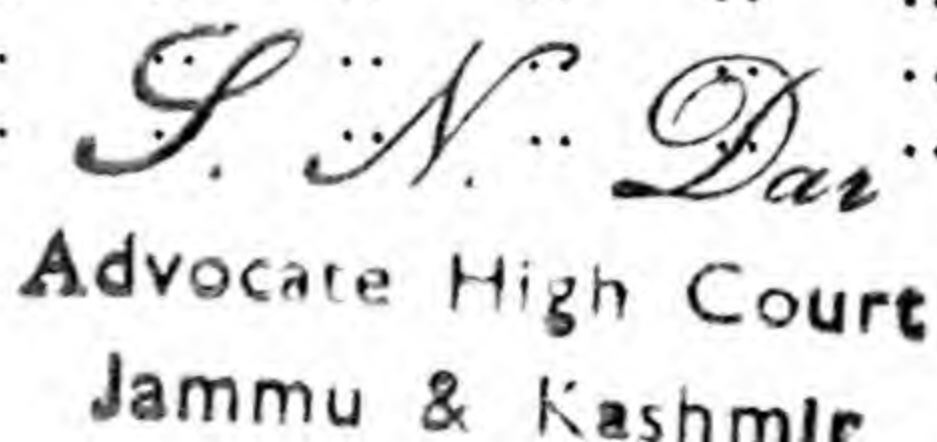 S. N. Dar
Advocate High Court
Jammu & Kashmir